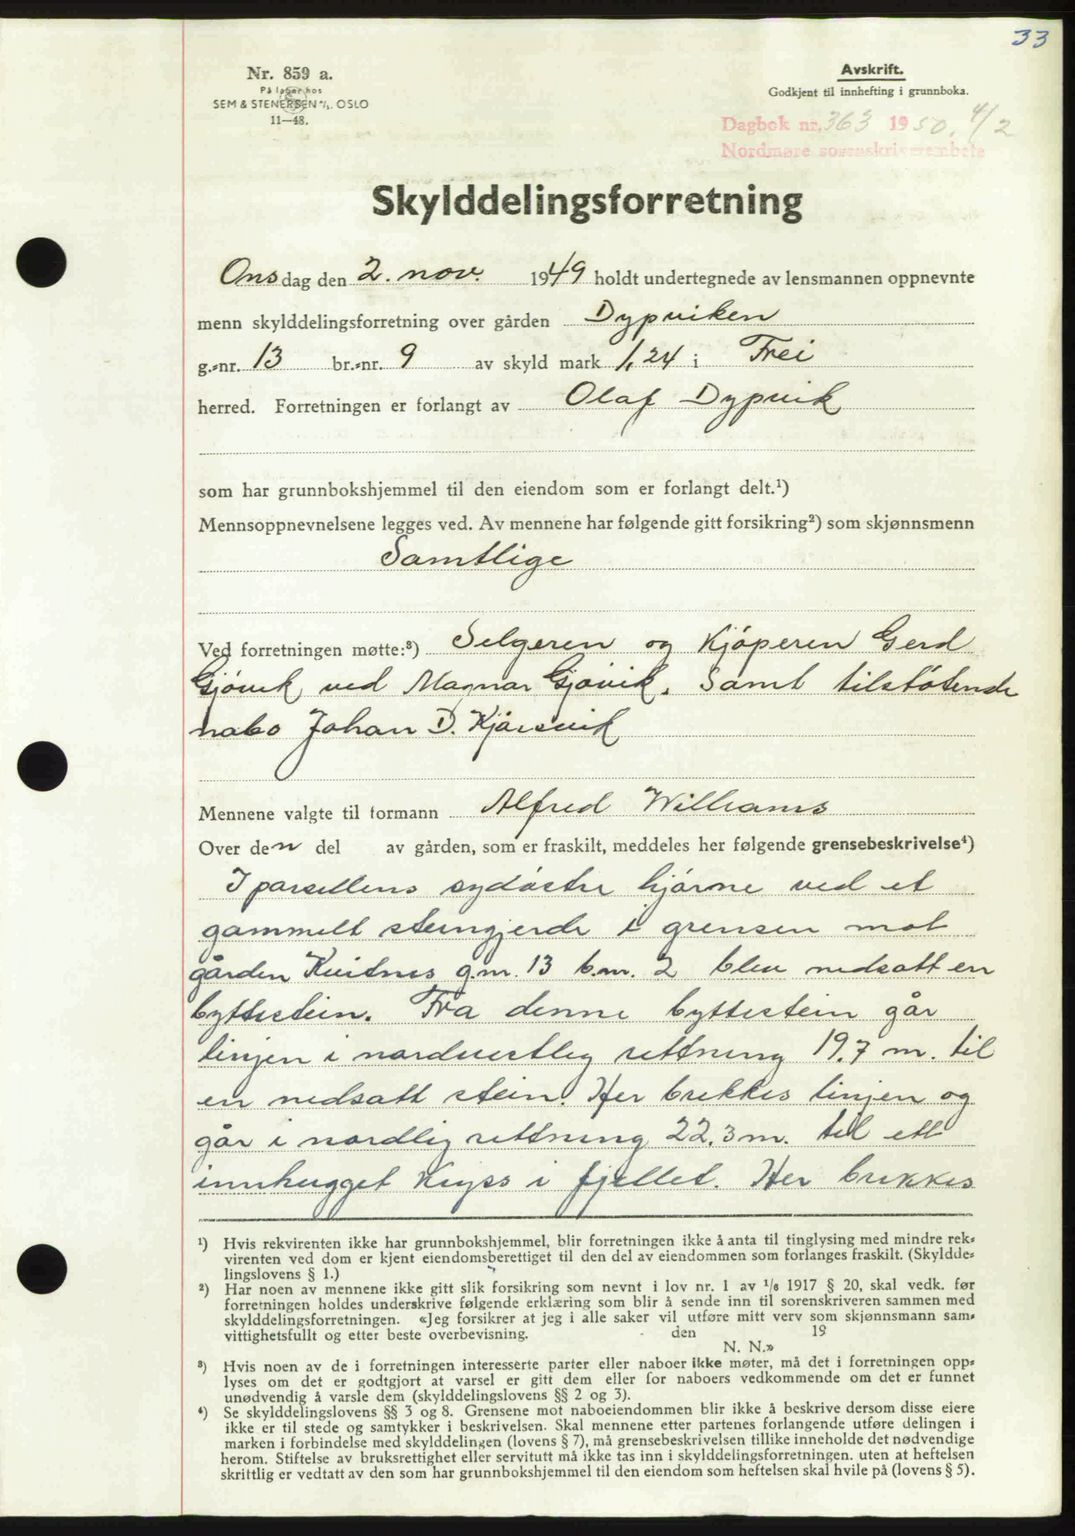 33
Nr. 859 a.
På lager hos
SEM & STENERSEN A/S. OSLO
11—48.
Avskrift.
Godkjent til innhefting i grunnboka.
Dagbok nr. 363 1950. 4/2
Nordmøre sorenskriverembete
Skylddelingsforretning
Onsdag den 2. nov. 1949 holdt undertegnede av lensmannen oppnevnte
menn skylddelingsforretning over gården Dypviken
g.-nr. 13 br.-nr. 9 av skyld mark 1,24 i Frei
herred. Forretningen er forlangt av Olaf Dypvik
som har grunnbokshjemmel til den eiendom som er forlangt delt.¹)
Mennsoppnevnelsene legges ved. Av mennene har følgende gitt forsikring²) som skjønnsmenn
Samtlige
Ved forretningen møtte:³) Selgeren og Kjøperen Gerd
Gjøvik ved Magnar Gjøvik. Samt tilstøtende
nabo Johan D. Kjørsvik
Mennene valgte til formann Alfred Williams
Over den del av gården, som er fraskilt, meddeles her følgende grensebeskrivelse⁴)
I parsellens sydøstre hjørne ved et
gammelt steingjerde i grensen mot
gården Kvitnes g.nr. 13 b.nr. 2 blev nedsatt en
byttestein. Fra denne byttestein går
linjen i nordvestlig rettning 19.7 m. til
en nedsatt stein. Her brekkes linjen og
går i nordlig rettning 22.3 m. til ett
innhugget Kryss i fjellet. Her brekkes
¹) Hvis rekvirenten ikke har grunnbokshjemmel, blir forretningen ikke å anta til tinglysing med mindre rek-
virenten ved dom er kjent eiendomsberettiget til den del av eiendommen som forlanges fraskilt. (Skyldde-
lingslovens § 1.)
²) Har noen av mennene ikke gitt slik forsikring som nevnt i lov nr. 1 av 1/6 1917 § 20, skal vedk. før
forretningen holdes underskrive følgende erklæring som blir å sende inn til sorenskriveren sammen med
skylddelingsforretningen. «Jeg forsikrer at jeg i alle saker vil utføre mitt verv som skjønnsmann sam-
vittighetsfullt og etter beste overbevisning. den 19
N. N.»
³) Hvis noen av de i forretningen interesserte parter eller naboer ikke møter, må det i forretningen opp-
lyses om det er godtgjort at varsel er gitt dem eller for naboers vedkommende om det er funnet
unødvendig å varsle dem (skylddelingslovens §§ 2 og 3).
⁴) Se skylddelingslovens §§ 3 og 8. Grensene mot naboeiendommen blir ikke å beskrive dersom disse eiere
ikke er til stede og samtykker i beskrivelsen. Skal mennene etter partenes forlangende utføre delingen i
marken i forbindelse med skylddelingen (lovens § 7), må grensebeskrivelsen tillike inneholde det nødvendige
herom. Stiftelse av bruksrettighet eller servitutt må ikke tas inn i skylddelingsforretningen. uten at heftelsen
skriftlig er vedtatt av den som har grunnbokshjemmel til den eiendom som heftelsen skal hvile på (lovens § 5).